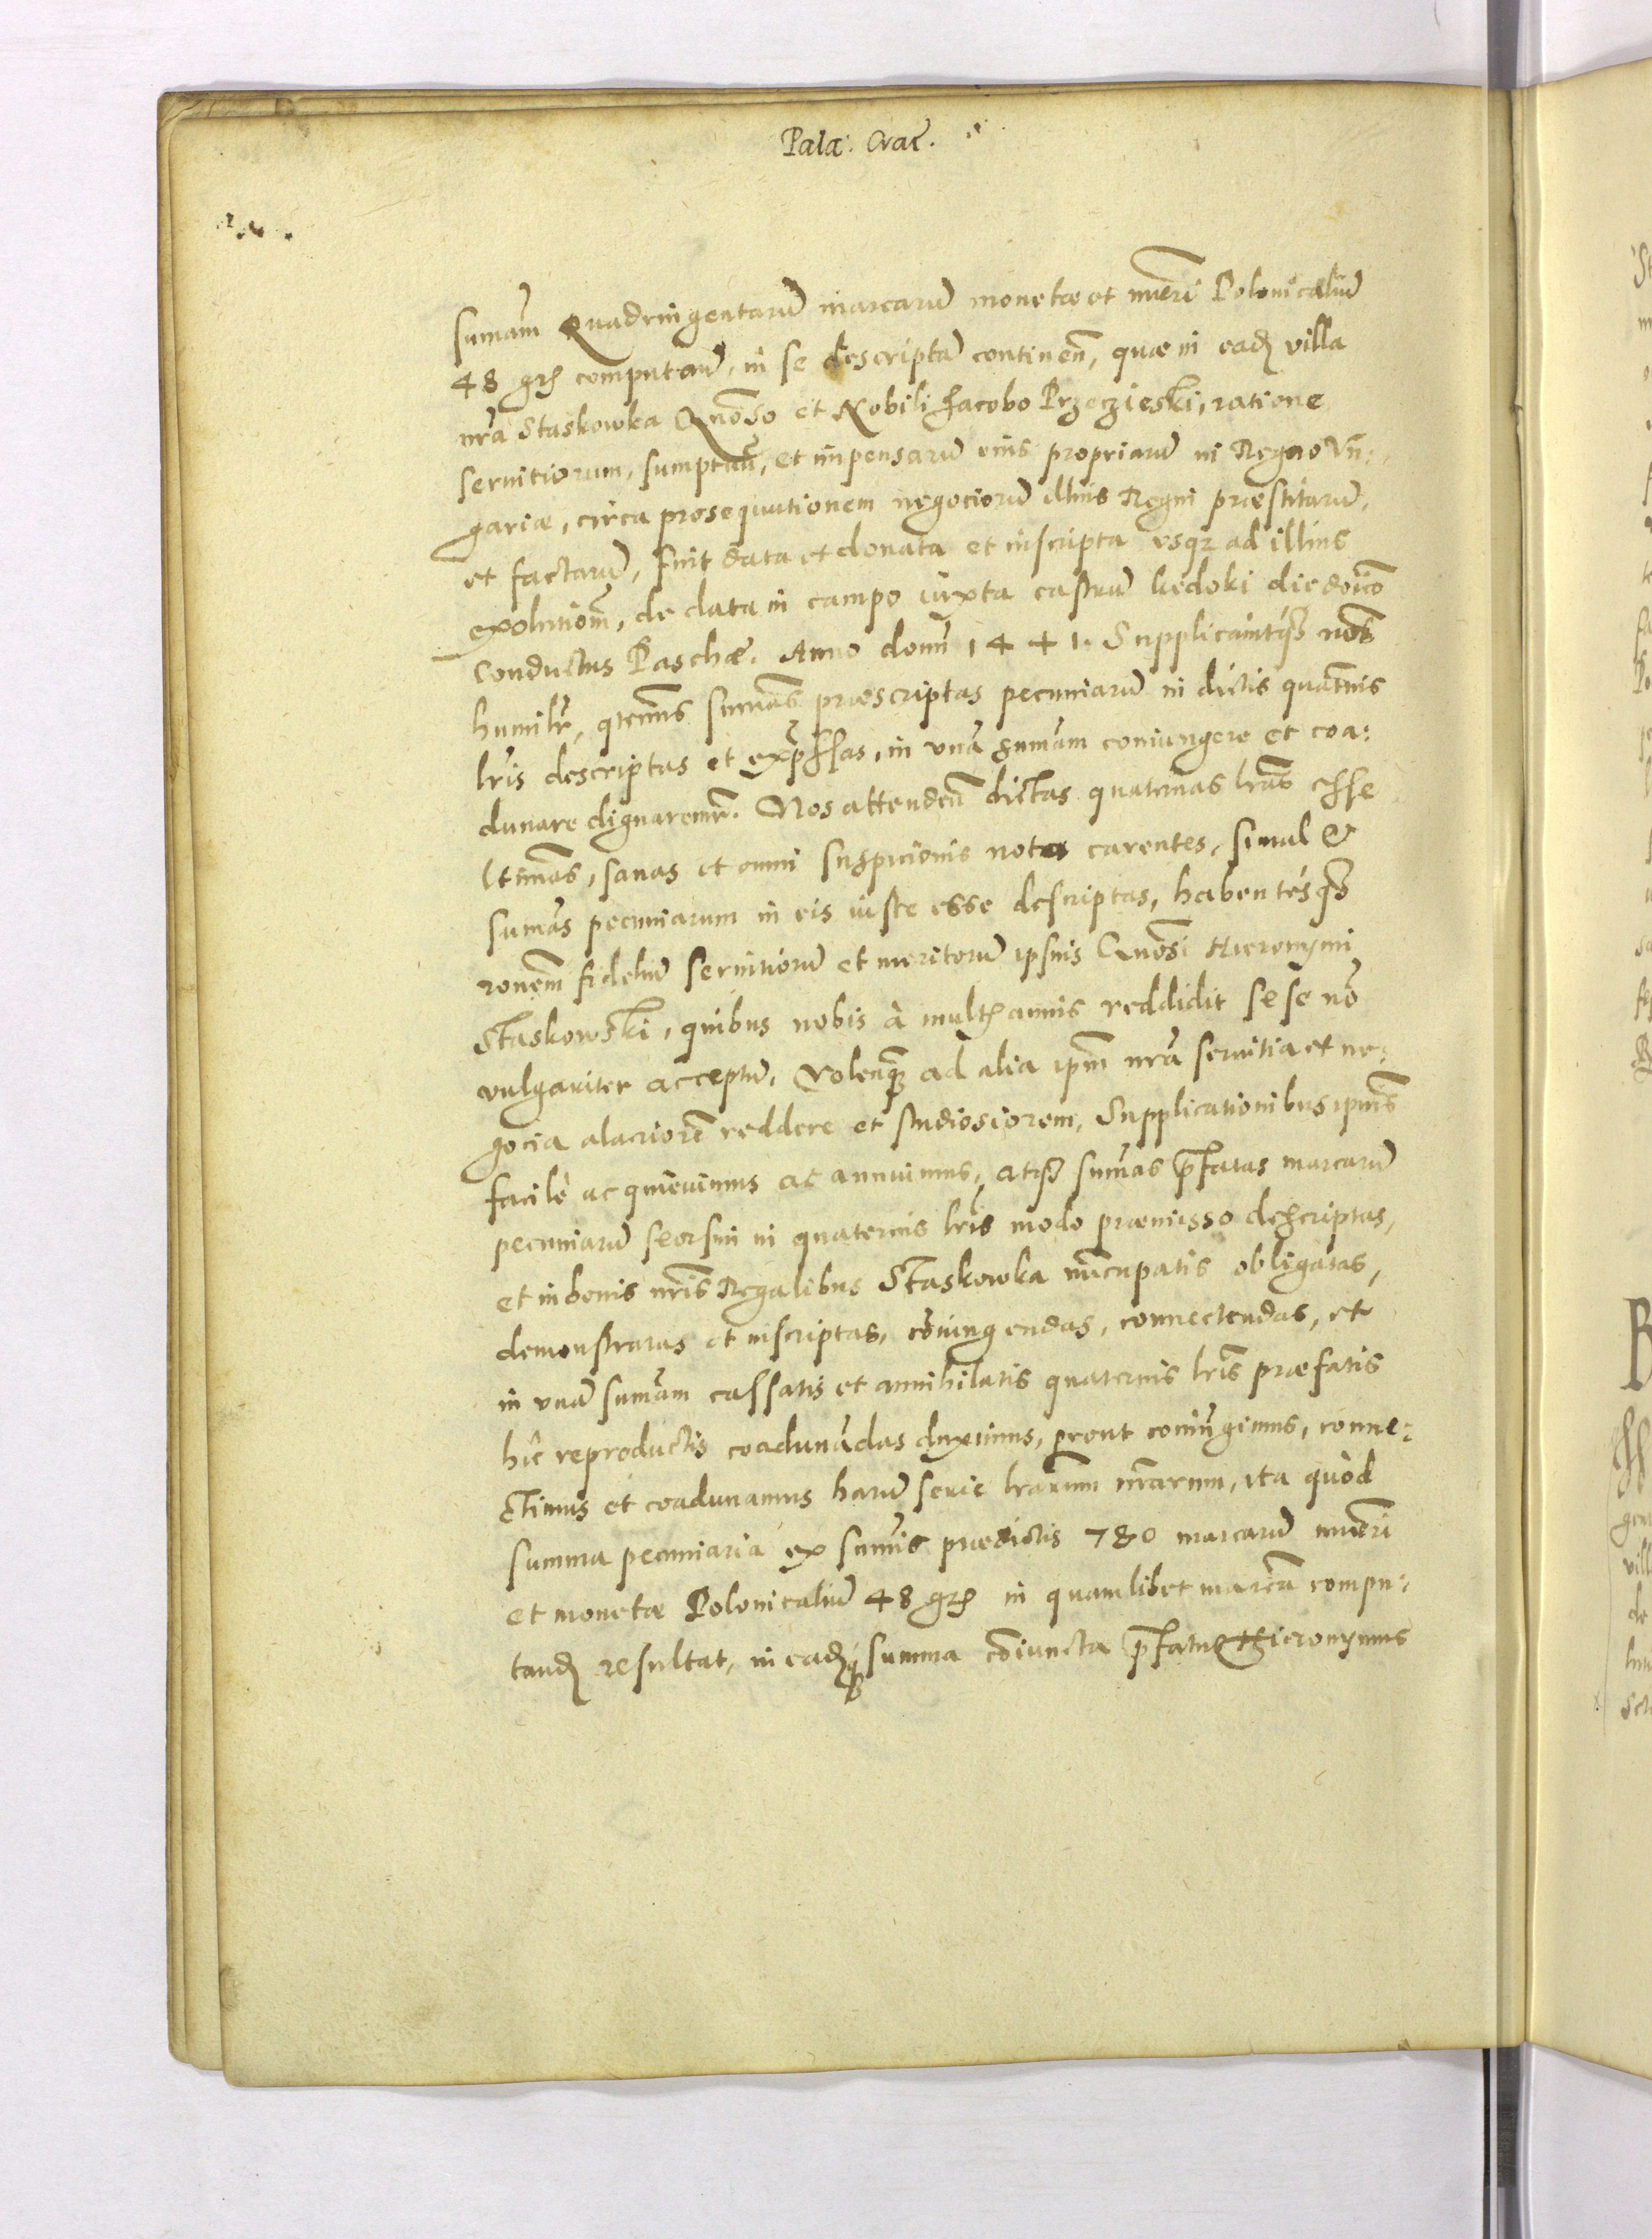 Pala: Crac̃.
sum̃am Quadringentarũ marcarũ monetæ et num̃eri Polonicaliũ
48 grs computanũ, in se descriptã continen̄, quæ in eadẽ villa
nrã Staskowka Gnõso et Nobili Jacobo Przeczieski, ratione
seruitiorum, sumptuũ, et impensarũ eius propriarũ in Regno Vn̄:
gariæ, circa prosequutionem negociorũ illius Regni præstitarũ,
et factarũ, fuit data et donata et inscripta vsq₃ ad illius
exolutionẽ, de data in campo iuxta castrum kedoki die doĩco
Conductus Paschæ. Anno domĩ 1441. Supplicauitq₃ nobis
humilr̃, qtenus sum̃as præscriptas pecuniarũ in dictis quaternis
lr̃is descriptas et expr̃ssas, in vnã sum̃am coniungere et coa:
dunare dignaremr̃. Nos attenden̄ dictas quaternas lrãs esse
ltimãs, sanas et omni suspicionis nota carentes, simul &
sum̃as pecuniarum in eis iuste esse descriptas, habentésq₃
ronẽm fideliũ seruitiorũ et meritorũ ipsius Gnõsi Hieronymi
Staskowski, quibus nobis à multis annis reddidit se se nõ
vulgariter acceptũ, Volenq₃ ad alia ipm̃ nrã seruitia et ne:
gocia alacriorẽ reddere et studiosiorem, Supplicationibus ipius
facilè acquieuimus ac annuimus, atq₃ sum̃as p̃fatas marcarũ
pecuniarũ seorsim in quaternis lr̃is modo præmisso descriptas,
et in bonis nr̃is Regalibus Staskowka nũcupatis obligatas,
demonstratas et inscriptas, cõiungendas, connectendas, et
in vnã sum̃am cassatis et annihilatis quaternis lr̃is præfatis
hic reproductis coadunãdas duximus, prout coniũgimus, conne:
ctimus et coadunamus harũ serie lrãrum nrãrum, ita quòd
summa pecuniaria ex sum̃is prædictis 780 marcarũ num̃eri
et monetæ Polonicaliũ 48 grs in quamlibet marcã compu:
tandẽ resultat, in eadẽq₃ summa cõiuncta p̃fatus Hieronymus